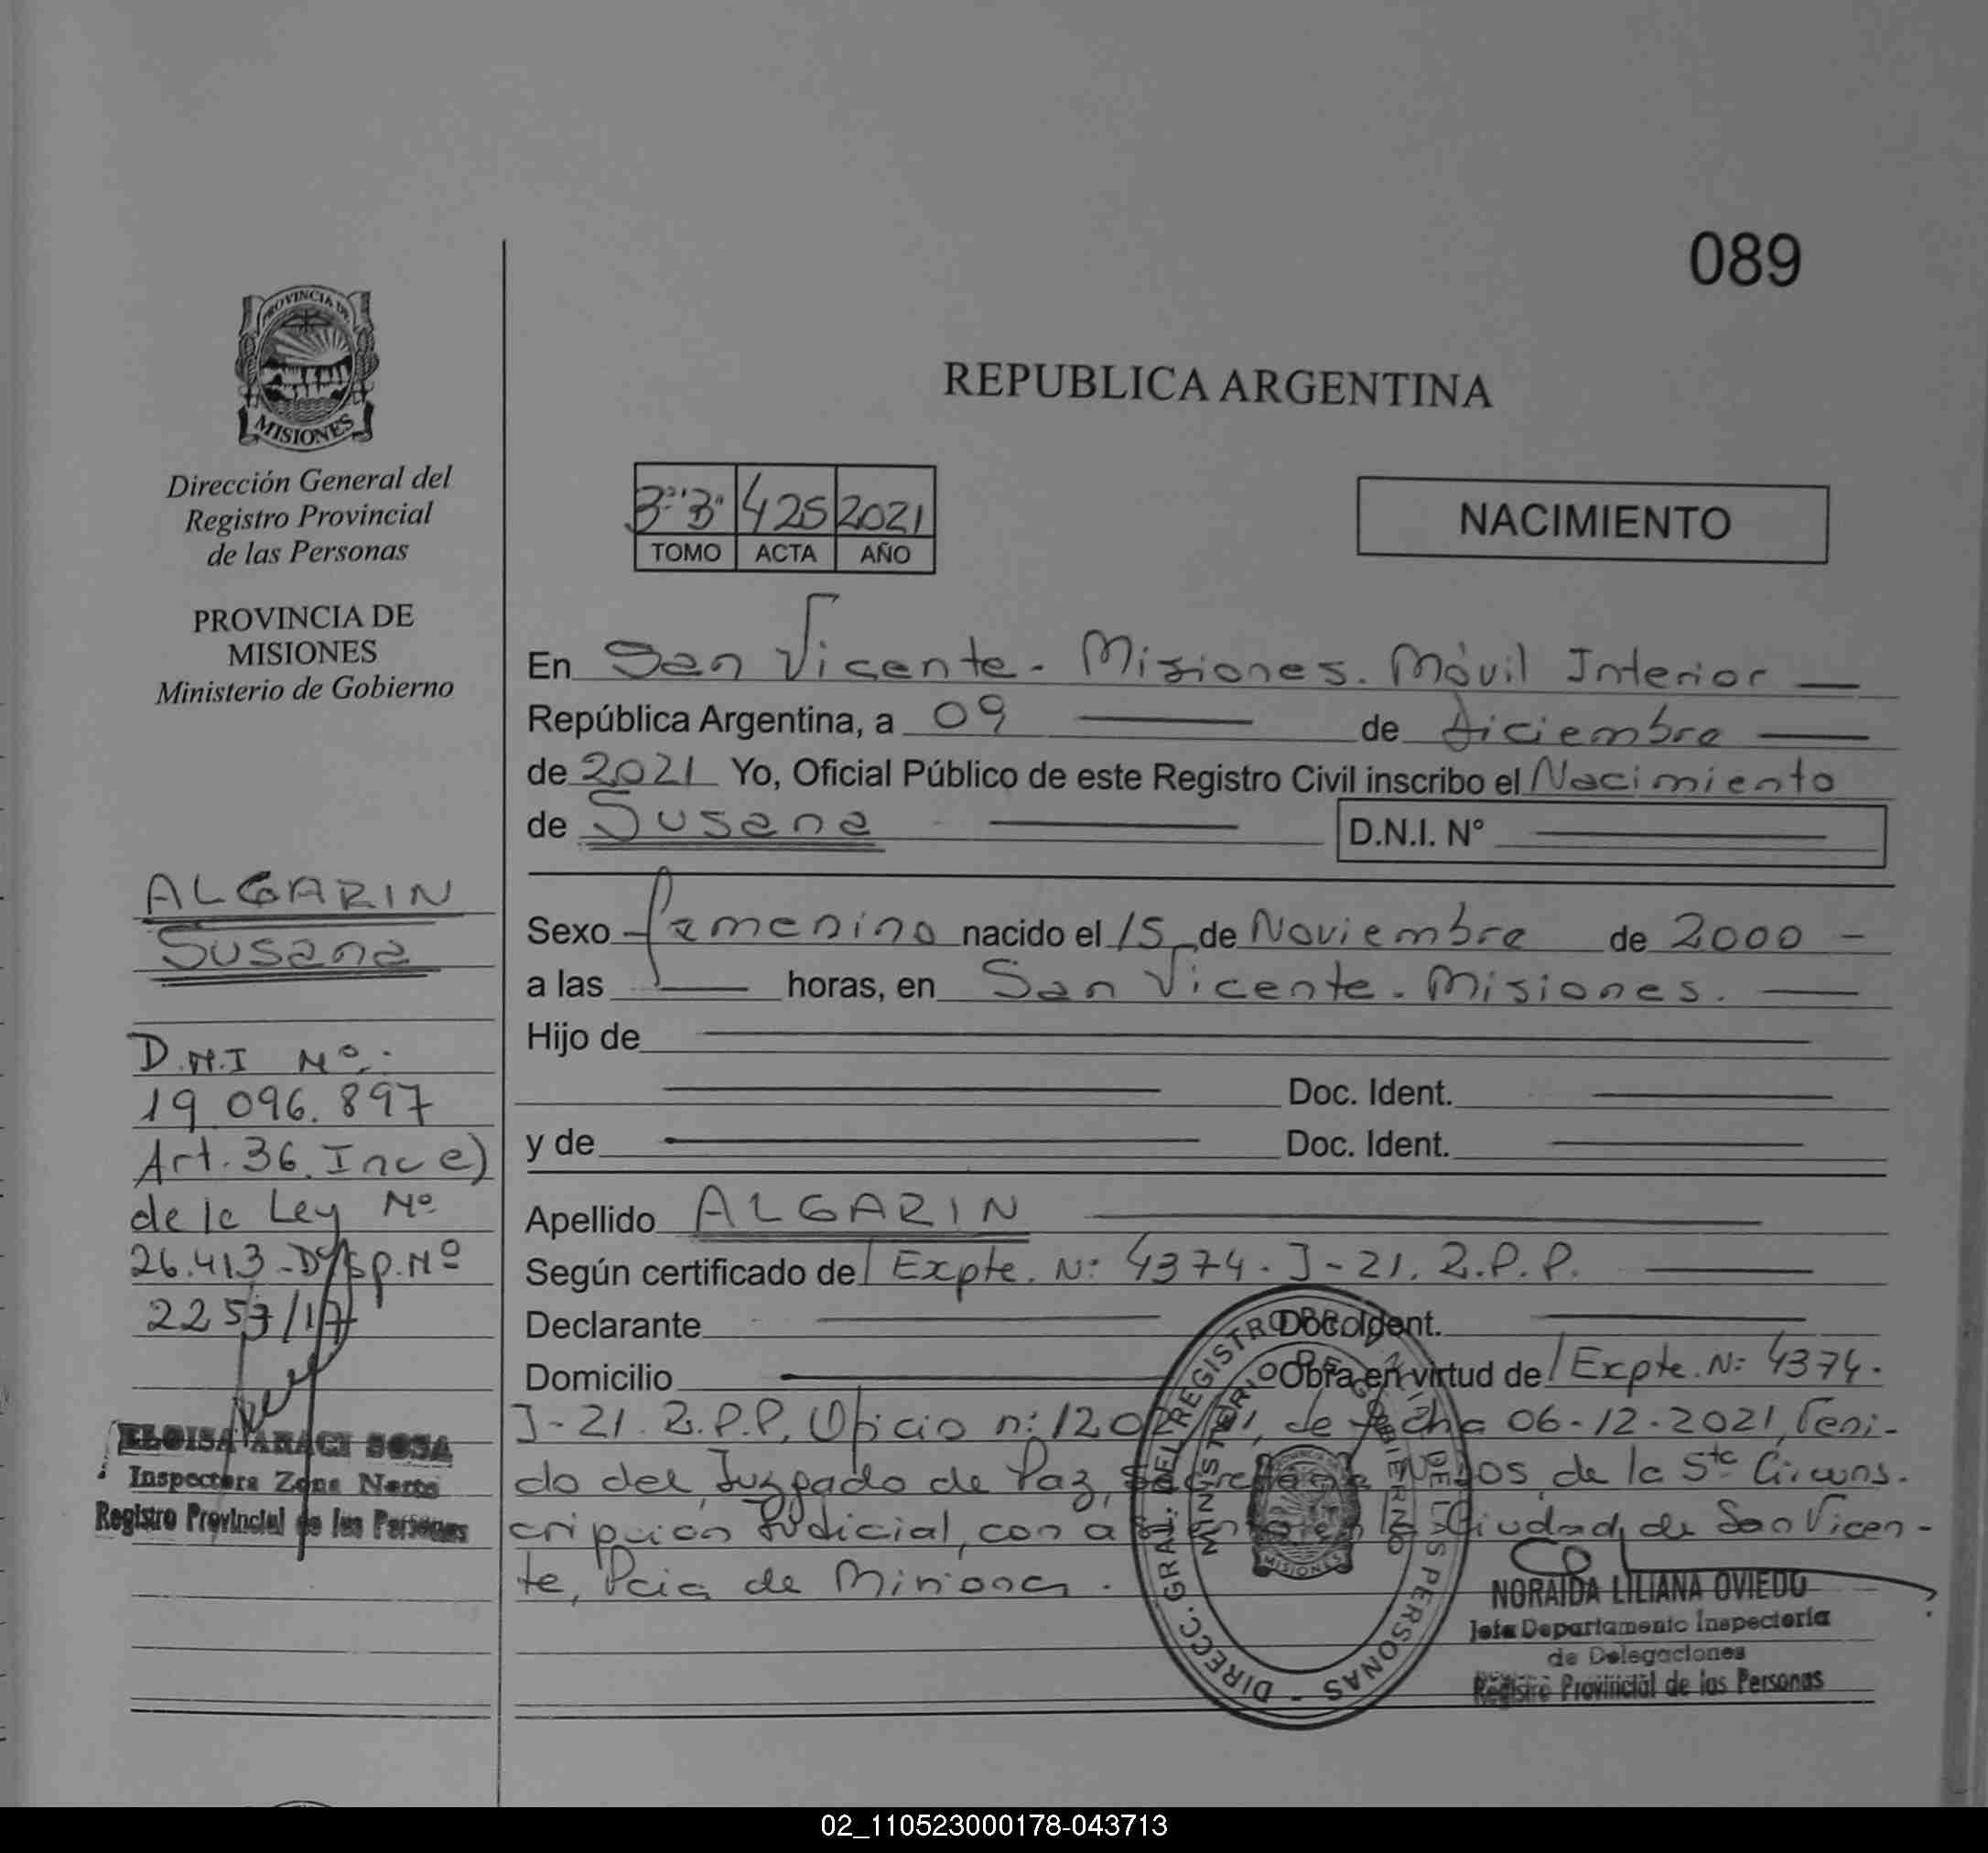 089
PROVINCIA DE
MISIONES
REPUBLICA ARGENTINA
Dirección General del
Registro Provincial
de las Personas
PROVINCIA DE
MISIONES
Ministerio de Gobierno
3° "B" 425 2021
TOMO ACTA AÑO
NACIMIENTO
En San Vicente - Misiones. Móvil Interior
República Argentina, a 09 de diciembre
de 2021 Yo, Oficial Público de este Registro Civil inscribo el Nacimiento
de Susana D.N.I. N°
Sexo femenino nacido el 15 de Noviembre de 2000
a las horas, en San Vicente - Misiones.
Hijo de
Doc. Ident.
y de Doc. Ident.
Apellido ALGARIN
Según certificado de Expte. N: 4374 - J - 21. R.P.P.
Declarante Doc. Ident.
Domicilio Obra en virtud de Expte. N: 4374 -
J - 21. R.P.P, Oficio n: de fecha 06-12-2021, Veni-
do del Juzgado de Paz, de la 5ta Circuns-
cripcion Judicial, con Ciudad de San Vicen-
te, Pcia de Misiones.
ALGARIN
Susana
D.N.I N°:
19.096.897
Art. 36. Inc e)
de la Ley N°
26.413 - Disp. N°
2257/17
ELOISA ARACI SOSA
Inspectora Zona Norte
Registro Provincial de las Personas
DIRECC. GRAL. DEL REGISTRO PROV. DE LAS PERSONAS
MINISTERIO DE GOBIERNO
MISIONES
NORAIDA LILIANA OVIEDO
Jefa Departamento Inspectoría
de Delegaciones
Registro Provincial de las Personas
02_110523000178-043713